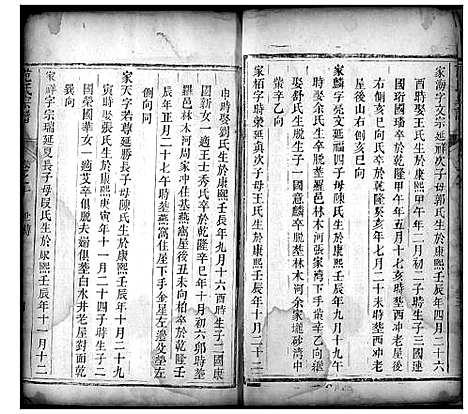 家海字文延祥次子母郭氏生於康熙壬辰年四月二十六
酉時娶王氏生於康熙甲午年二月初二子時生子三國連
國珩國㺹卒於乾隆甲午年五月十七亥時塟本屋後
右側亥山巳向王氏卒於乾隆癸亥年十月二十亥時塟
右側亥山巳向
家麟字英文延福四子母陳氏生於康熙壬辰年九月十九午
時娶舒氏生卒脫塟羅邑林木河張家灣下手獅形
娶許氏生子一國意麟卒脫塟林木河余家壪砂灣中
塋辛乙向
家栢字時榮延眞次子母王氏生於康熙壬辰年十月二十二
申時娶劉氏生於康熙壬辰年九月十六酉時生子二國康
國新女一適王士秀氏卒於乾隆辛巳年十月初六卯時塟
羅邑林木河周家冲住基燕窩屋後丑未向栢卒於乾隆壬
辰年正月二十七午時塟燕窩住屋下手金星左邊艾塋左
側向同
家天字若尊延勝長子母陳氏生於康熙壬辰年十月二十九
寅時娶張氏生於康熙庚寅年十一月十四子時生子二國
國榮國華女一適艾卒俱脫夫婦俱塟白水井老屋對面乾
巽向
家祥字宗瑞延夏長子母段氏生於康熙壬辰年十一月十二